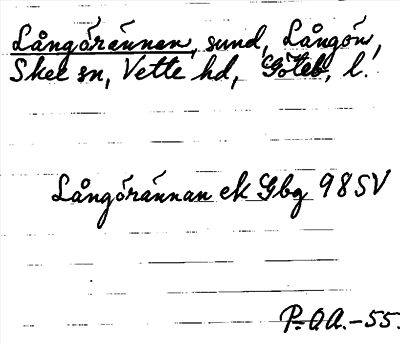 Långörännan, sund, Långön,
Skee sn, Vette hd, Göteb. l.
Långörännan ek Gbg 98 SV
P.Q.A. -55.